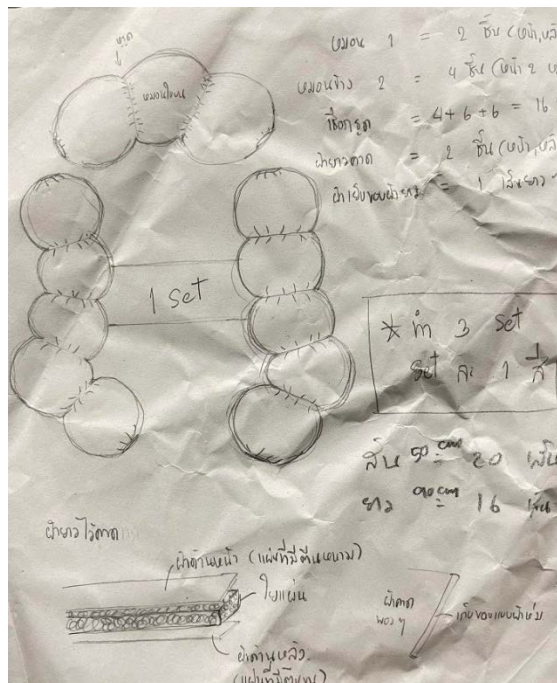 มัด
หมอนใหญ่
หมอน 1 = 2 ชิ้น (หน้า,หลั
หมอนข้าง 2 = 4 ชิ้น (หน้า 2 ห
เชือกรูด = 4+6+6 = 16
ผ้ายาวคาด = 2 ชิ้น (หน้า,หลั
ผ้าเย็บขอบผ้ายาว = 1 เส้นยาว
1 Set
* ทำ 3 set
set ละ 1 สี
สั้น 50 cm = 20 เส้น
ยาว 90 cm = 16 เส้น
ผ้ายาวไว้คาด
ผ้าด้านหน้า (แผ่นที่มีตีนหนาม)
ใยแผ่น
ผ้าด้านหลัง
(แผ่นที่มีตีน
ผ้าคาด
พอง ๆ
เก็บขอบแบบผ้าห่ม